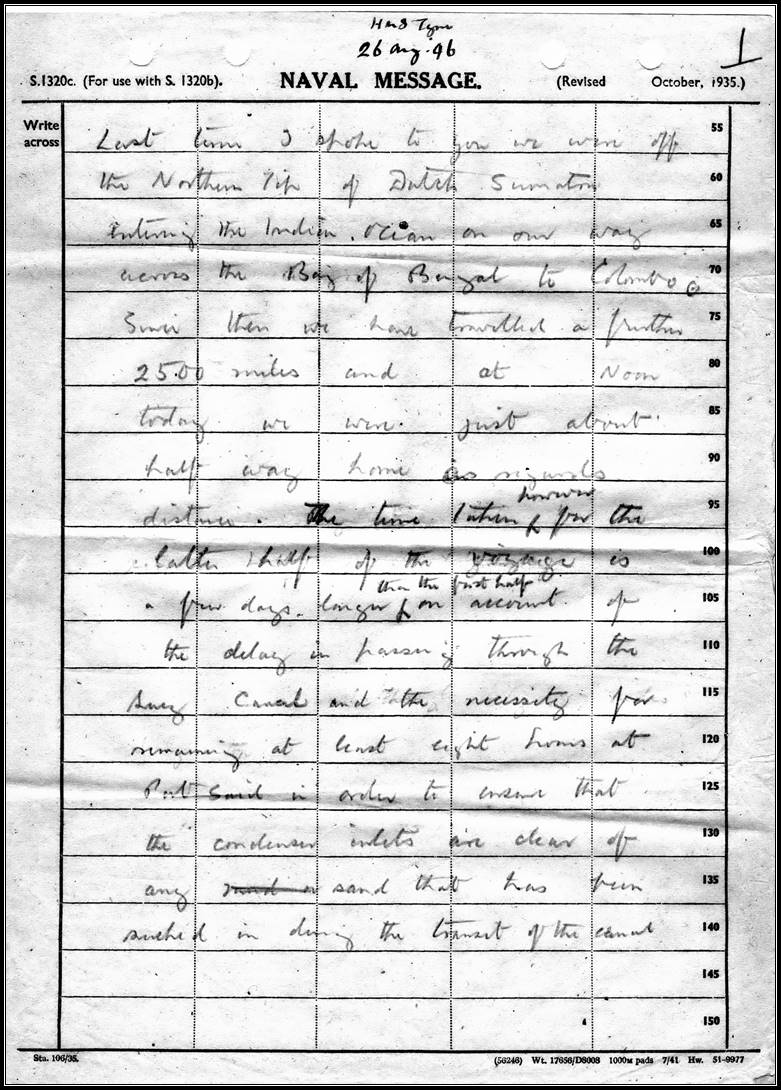 HMS Tyne
26 Aug. 46
1
S.1320c. (For use with S. 1320b). NAVAL MESSAGE. (Revised October, 1935.)
Write across
Last time I spoke to you we were off 55
the Northern Tip of Dutch Sumatra 60
entering the Indian Ocean on our way 65
across the Bay of Bengal to Colombo. 70
Since then we have travelled a further 75
2500 miles and at Noon 80
today we were just about 85
half way home as regards 90
however
distance. The time taken for the 95
latter half of the voyage is 100
than the first half
a few days longer on account of 105
the delay in passing through the 110
Suez Canal and the necessity for 115
remaining at least eight hours at 120
Port Said in order to ensure that 125
the condenser inlets are clear of 130
any sand that has been 135
sucked in during the transit of the canal 140
145
150
Sta. 106/35. (56246) Wt. 17656/D8008 1000M pads 7/41 Hw. 51-9977